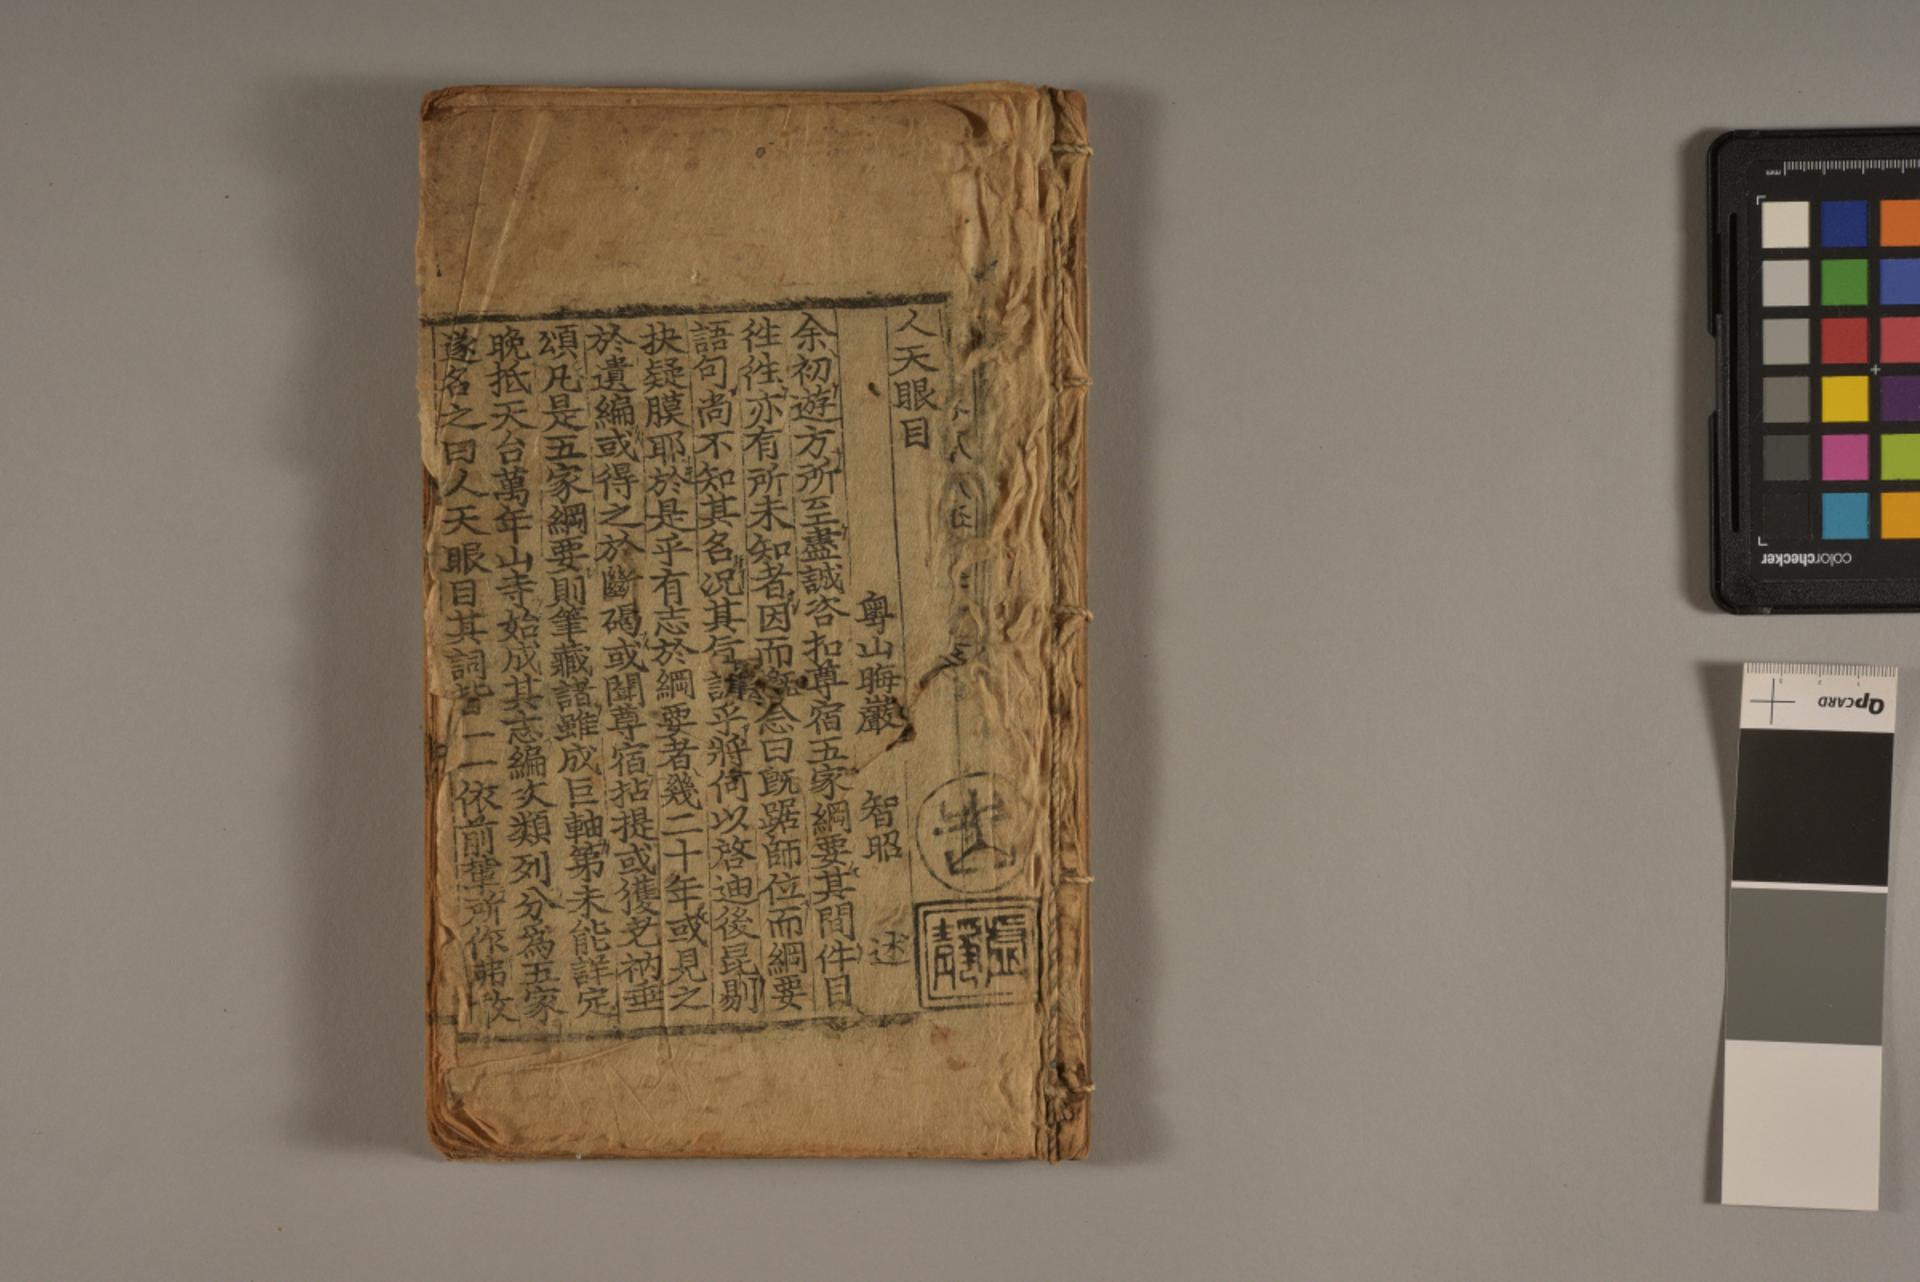 人天眼目
粤山晦巖 智昭 述
余初遊方所至盡誠咨扣尊宿五家綱要其間件目
徃徃亦有所未知者因而旣念曰旣踞師位而綱要
語句尚不知其名况其旨訣乎將何以啓迪後昆剔
抉疑膜耶於是乎有志於綱要者幾二十年或見之
於遺編或得之於斷碣或聞尊宿拈提或獲老衲垂
頌凡是五家綱要則筆藏諸雖成巨軸第未能詳定
晚抵天台萬年山寺始成其志編次類列分爲五家
遂名之曰人天眼目其詞皆一一依前輩所作弗敢
靜
colorchecker
mm
QPCARD